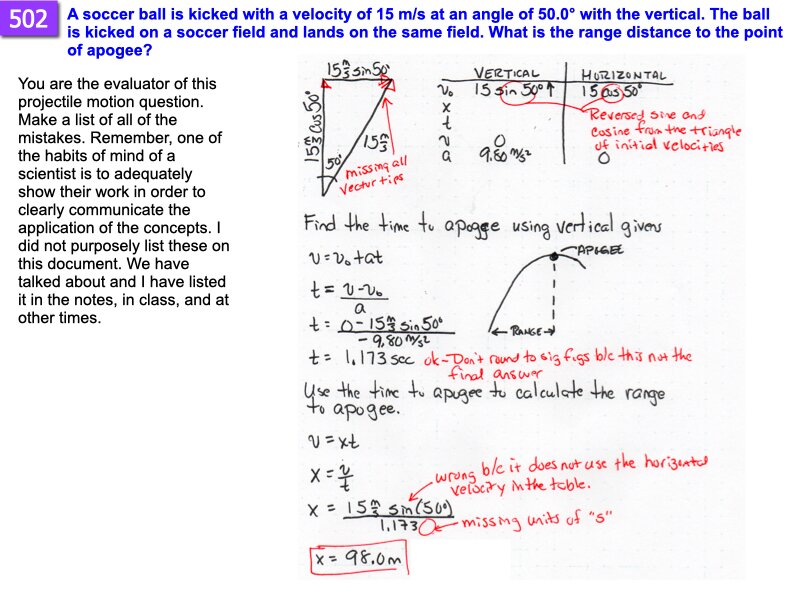 502
A soccer ball is kicked with a velocity of 15 m/s at an angle of 50.0° with the vertical. The ball
is kicked on a soccer field and lands on the same field. What is the range distance to the point
of apogee?
You are the evaluator of this
projectile motion question.
Make a list of all of the
mistakes. Remember, one of
the habits of mind of a
scientist is to adequately
show their work in order to
clearly communicate the
application of the concepts. I
did not purposely list these on
this document. We have
talked about and I have listed
it in the notes, in class, and at
other times.
15 m/s sin 50°
15 m/s cos 50°
15 m/s
50°
missing all
vector tips
VERTICAL
HORIZONTAL
v₀ 15 sin 50° ↑ 15 cos 50°
x
t
v 0
a 9.80 m/s² 0
Reversed sine and
cosine from the triangle
of initial velocities
Find the time to apogee using vertical givens
v = v₀ + at
t = v - v₀ / a
t = 0 - 15 m/s sin 50° / - 9.80 m/s²
t = 1.173 sec
ok - Don't round to sig figs b/c this not the
final answer
APOGEE
← RANGE →
Use the time to apogee to calculate the range
to apogee.
v = xt
x = v / t
x = 15 m/s sin(50°) / 1.173
wrong b/c it does not use the horizontal
velocity in the table.
missing units of "s"
x = 98.0m